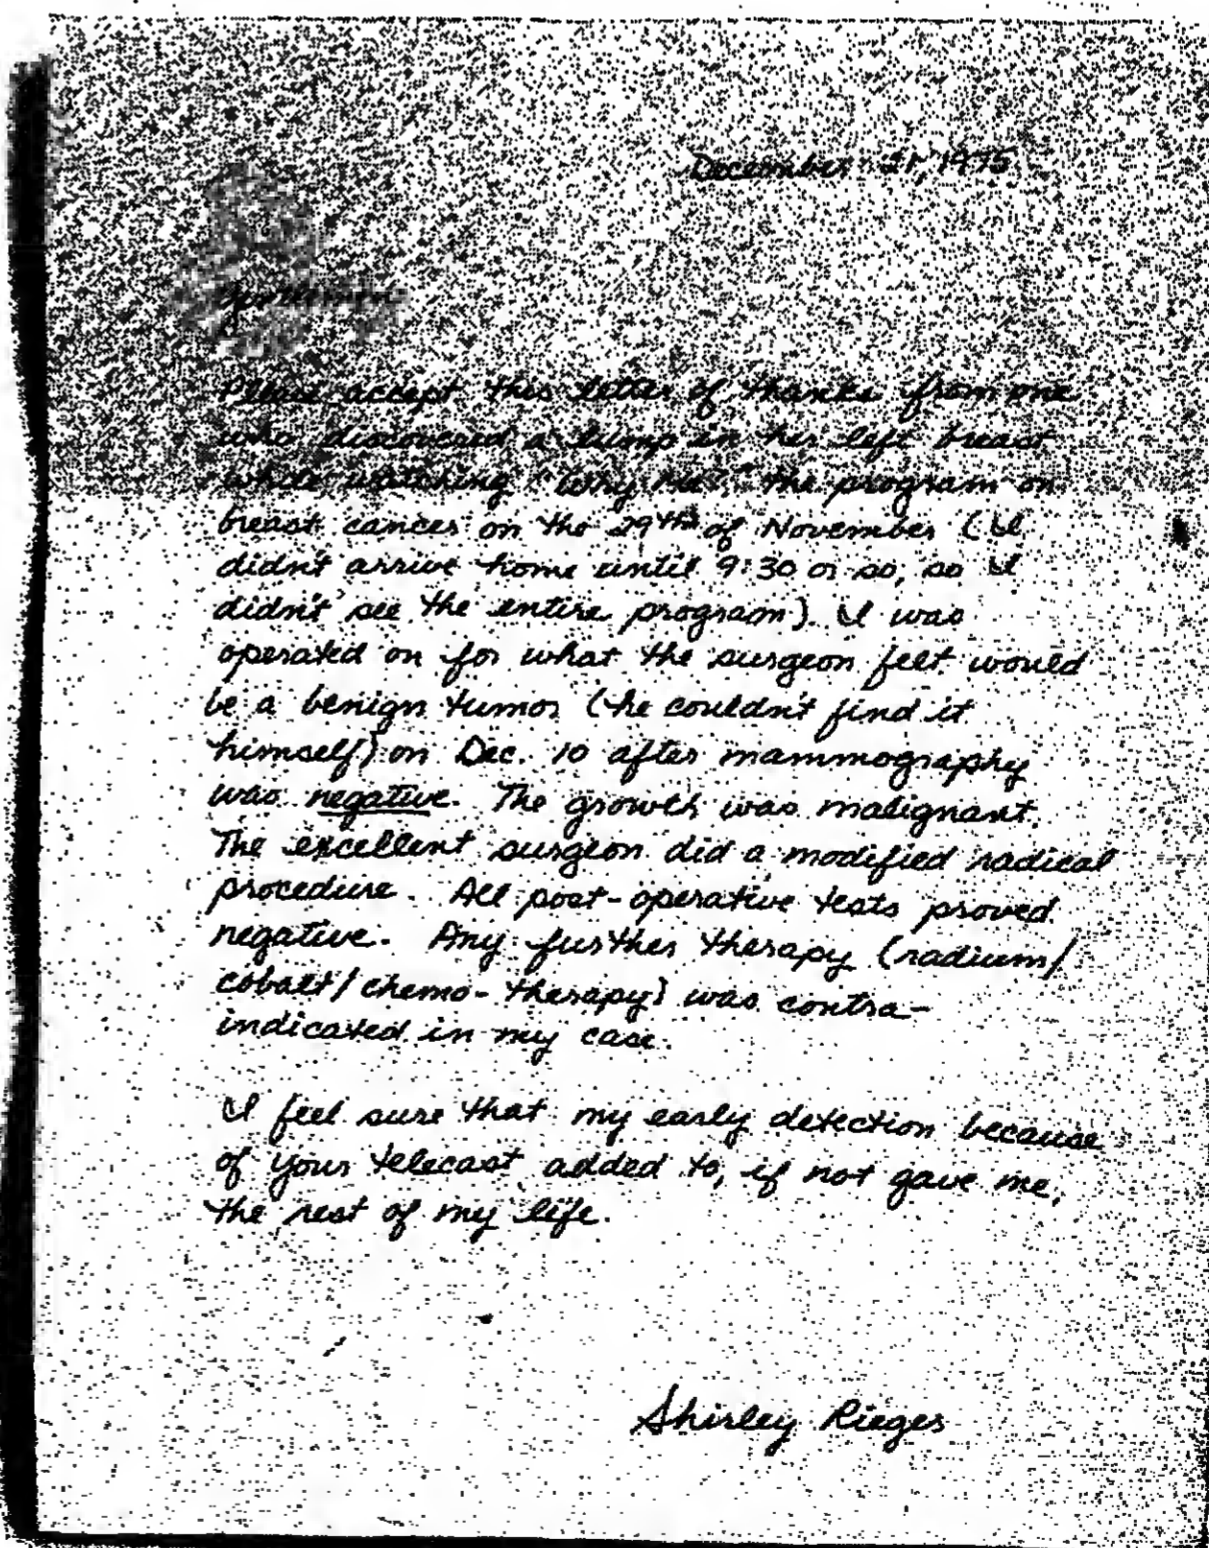 December 21, 1975
Gentlemen
Please accept this letter of thanks from one
who discovered a lump in her left breast
while watching "Why Me?," the program on
breast cancer on the 29th of November (I
didn't arrive home until 9:30 or so, so I
didn't see the entire program). I was
operated on for what the surgeon felt would
be a benign tumor (he couldn't find it
himself) on Dec. 10 after mammography
was negative. The growth was malignant.
The excellent surgeon did a modified radical
procedure. All post-operative tests proved
negative. Any further therapy (radium/
cobalt/chemo-therapy) was contra-
indicated in my case.
I feel sure that my early detection because
of your telecast added to, if not gave me,
the rest of my life.
Shirley Rieger